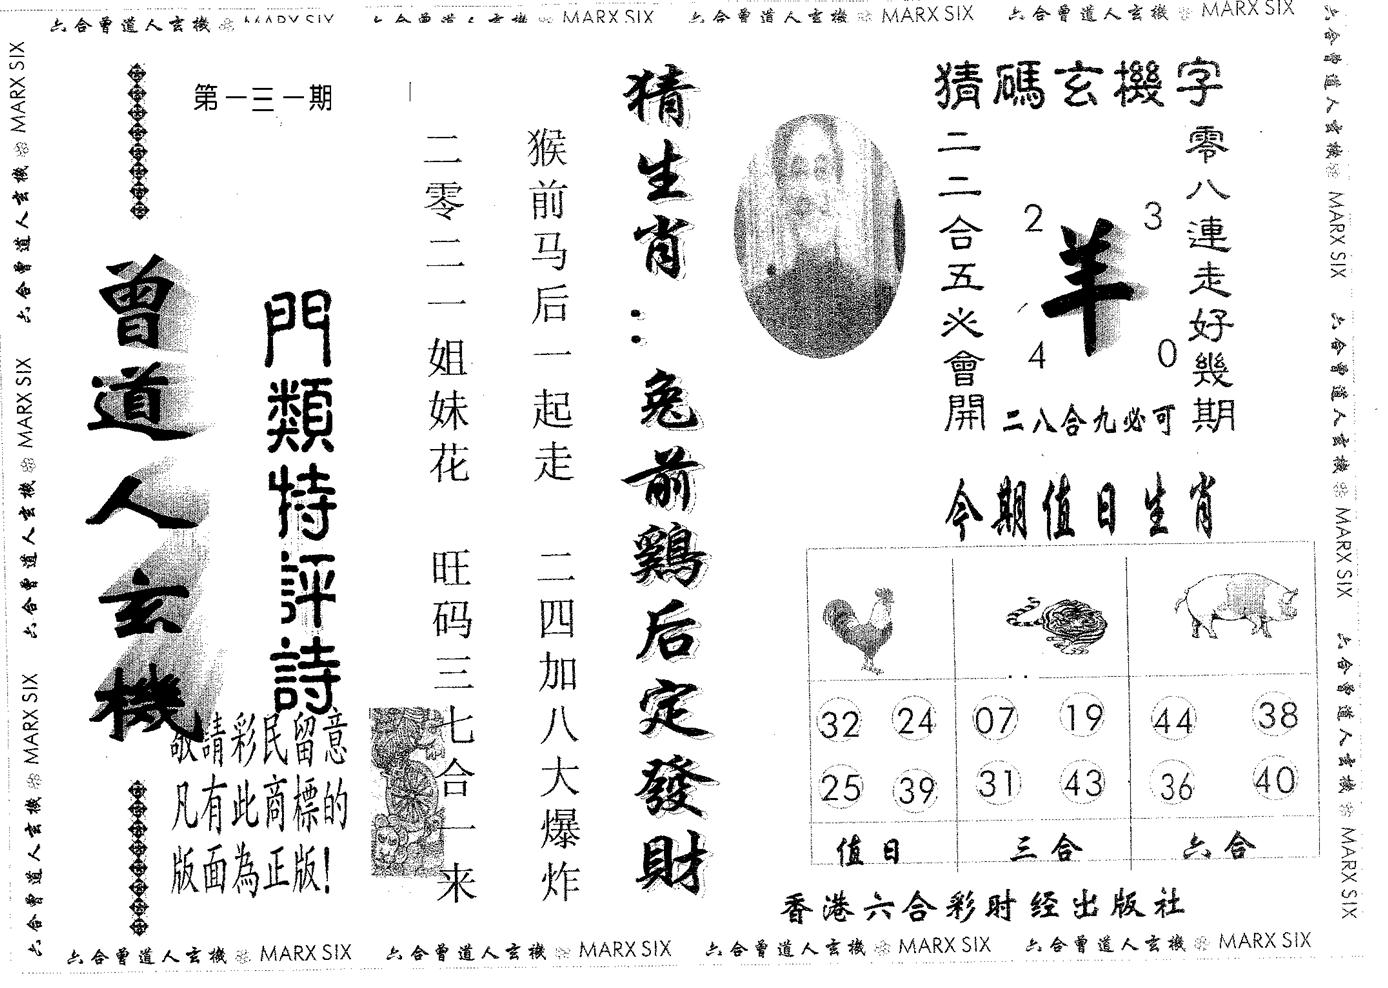 六合曾道人玄機 MARX SIX
六合曾道人玄機 MARX SIX
六合曾道人玄機 MARX SIX
六合曾道人玄機 MARX SIX
六合曾道人玄機 MARX SIX
六合曾道人玄機 MARX SIX
六合曾道人玄機 MARX SIX
第一三一期
曾道人玄機
門類特評詩
敬請彩民留意
凡有此商標的
版面為正版!
猜生肖:兔前鷄后定發財
猴前马后一起走 二四加八大爆炸
二零二一姐妹花 旺码三七合一来
猜碼玄機字
零八連走好幾期
二二合五必會開
2 3
羊
4 0
二八合九必可
今期值日生肖
32 24 07 19 44 38
25 39 31 43 36 40
值日 三合 六合
香港六合彩时经出版社
六合曾道人玄機 MARX SIX
六合曾道人玄機 MARX SIX
六合曾道人玄機 MARX SIX
六合曾道人玄機 MARX SIX
六合曾道人玄機 MARX SIX
六合曾道人玄機 MARX SIX
六合曾道人玄機 MARX SIX